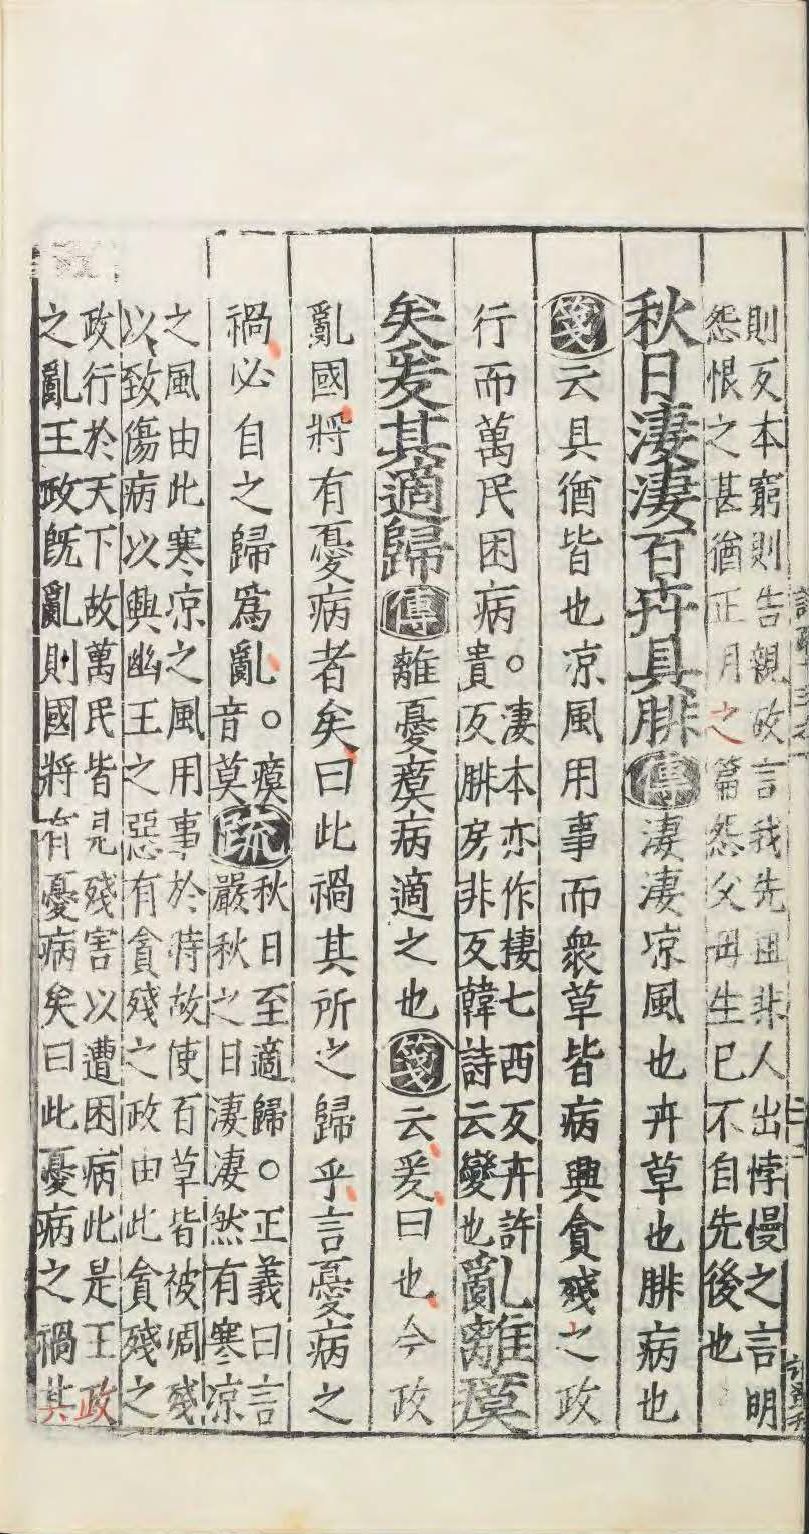 則反本窮則告親故言我先祖非人出悖慢之言明
怨恨之甚猶正月之篇怨父母生已不自先後也
秋日淒淒百卉具腓傳淒淒凉風也卉草也腓病也
箋云具猶皆也凉風用事而衆草皆病興貪殘之政
行而萬民困病○淒本亦作棲七西反卉許
貴反腓房非反韓詩云變也亂離瘼
矣爰其適歸傳離憂瘼病適之也箋云爰曰也今政
亂國將有憂病者矣曰此禍其所之歸乎言憂病之
禍必自之歸爲亂○瘼
音莫疏秋日至適歸○正義曰言
嚴秋之日淒淒然有寒凉
之風由此寒凉之風用事於時故使百草皆被凋殘
以致傷病以興幽王之惡有貪殘之政由此貪殘之
政行於天下故萬民皆見殘害以遭困病此是王政
之亂王政旣亂則國將有憂病矣曰此憂病之禍其